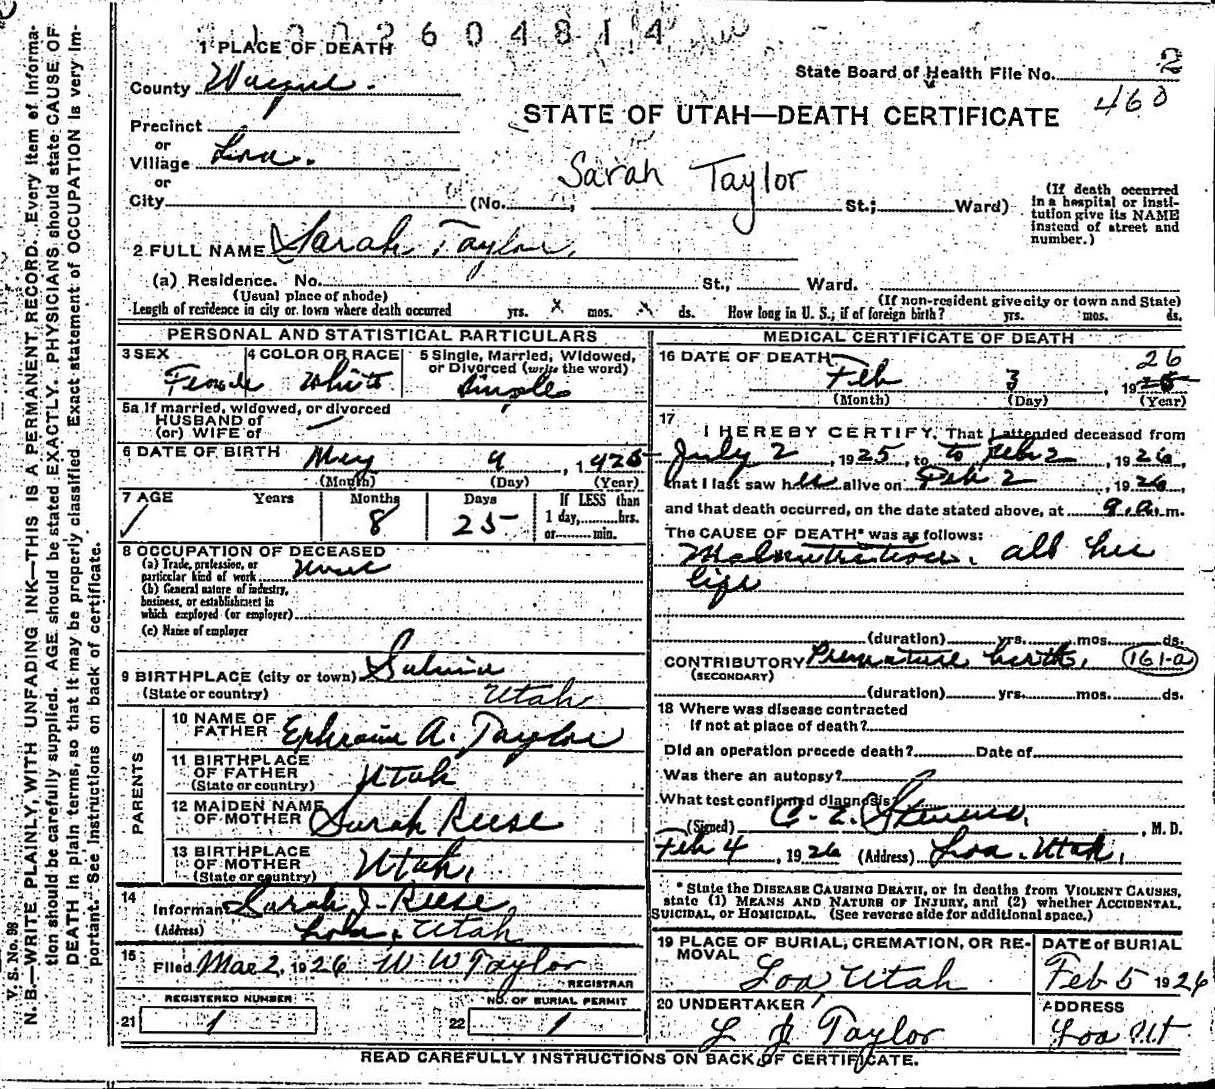 1 0 0 2 6 0 4 8 1 4
1 PLACE OF DEATH
County Wayne.
State Board of Health File No. 2
460
STATE OF UTAH—DEATH CERTIFICATE
Precinct
or
Village Loa.
or
Sarah Taylor
City (No. , St.; Ward)
(If death occurred in a hospital or institution give its NAME instead of street and number.)
2 FULL NAME Sarah Taylor.
(a) Residence. No. St., Ward.
(Usual place of abode) (If non-resident give city or town and State)
Length of residence in city or town where death occurred yrs. x mos. x ds. How long in U. S.; if of foreign birth? yrs. mos. ds.
PERSONAL AND STATISTICAL PARTICULARS
3 SEX Female
4 COLOR OR RACE White
5 Single, Married, Widowed, or Divorced (write the word) Single
5a If married, widowed, or divorced
HUSBAND of
(or) WIFE of
6 DATE OF BIRTH May 9, 1925
(Month) (Day) (Year)
7 AGE Years Months 8 Days 25
If LESS than
1 day, hrs.
or min.
8 OCCUPATION OF DECEASED
(a) Trade, profession, or
particular kind of work None
(b) General nature of industry,
business, or establishment in
which employed (or employer)
(c) Name of employer
9 BIRTHPLACE (city or town) Salina
(State or country) Utah
PARENTS
10 NAME OF
FATHER Ephraim A. Taylor
11 BIRTHPLACE
OF FATHER
(State or country) Utah
12 MAIDEN NAME
OF MOTHER Sarah Reese
13 BIRTHPLACE
OF MOTHER
(State or country) Utah.
14
Informant Sarah J. Reese
(Address) Loa, Utah
15
Filed Mar 2, 1926 W W Taylor
REGISTRAR
REGISTERED NUMBER
21 1
NO. OF BURIAL PERMIT
22 1
MEDICAL CERTIFICATE OF DEATH
16 DATE OF DEATH Feb 3, 1925 26
(Month) (Day) (Year)
17
I HEREBY CERTIFY, That I attended deceased from
July 2, 1925, to to Feb 2, 1926,
that I last saw her alive on Feb 2, 1926,
and that death occurred, on the date stated above, at 9 a. m.
The CAUSE OF DEATH* was as follows:
Malnutrition. all her
life
(duration) yrs. mos. ds.
CONTRIBUTORY Premature birth. 161-a
(SECONDARY)
(duration) yrs. mos. ds.
18 Where was disease contracted
if not at place of death?
Did an operation precede death? Date of
Was there an autopsy?
What test confirmed diagnosis?
(Signed) , M. D.
Feb 4, 1926 (Address) Loa. Utah.
* State the DISEASE CAUSING DEATH, or in deaths from VIOLENT CAUSES,
state (1) MEANS AND NATURE OF INJURY, and (2) whether ACCIDENTAL,
SUICIDAL, or HOMICIDAL. (See reverse side for additional space.)
19 PLACE OF BURIAL, CREMATION, OR REMOVAL
Loa Utah
DATE of BURIAL
Feb 5 1926
20 UNDERTAKER
L J Taylor
ADDRESS
Loa Ut
READ CAREFULLY INSTRUCTIONS ON BACK OF CERTIFICATE.
V. S. No. 98
N. B.—WRITE PLAINLY, WITH UNFADING INK—THIS IS A PERMANENT RECORD. Every item of information should be carefully supplied. AGE should be stated EXACTLY. PHYSICIANS should state CAUSE OF DEATH in plain terms, so that it may be properly classified. Exact statement of OCCUPATION is very important. See instructions on back of certificate.